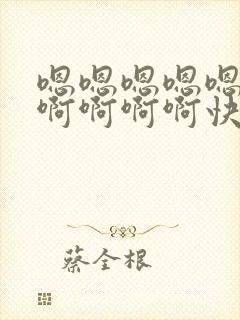 嗯嗯嗯嗯嗯
啊啊啊啊快
蔡全根